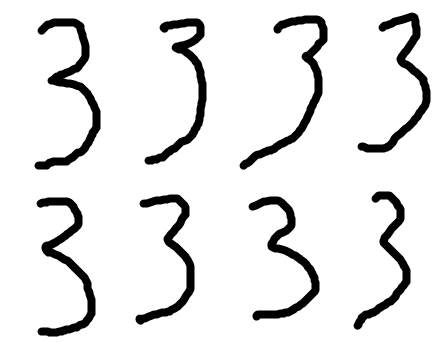 3 3 3 3
3 3 3 3